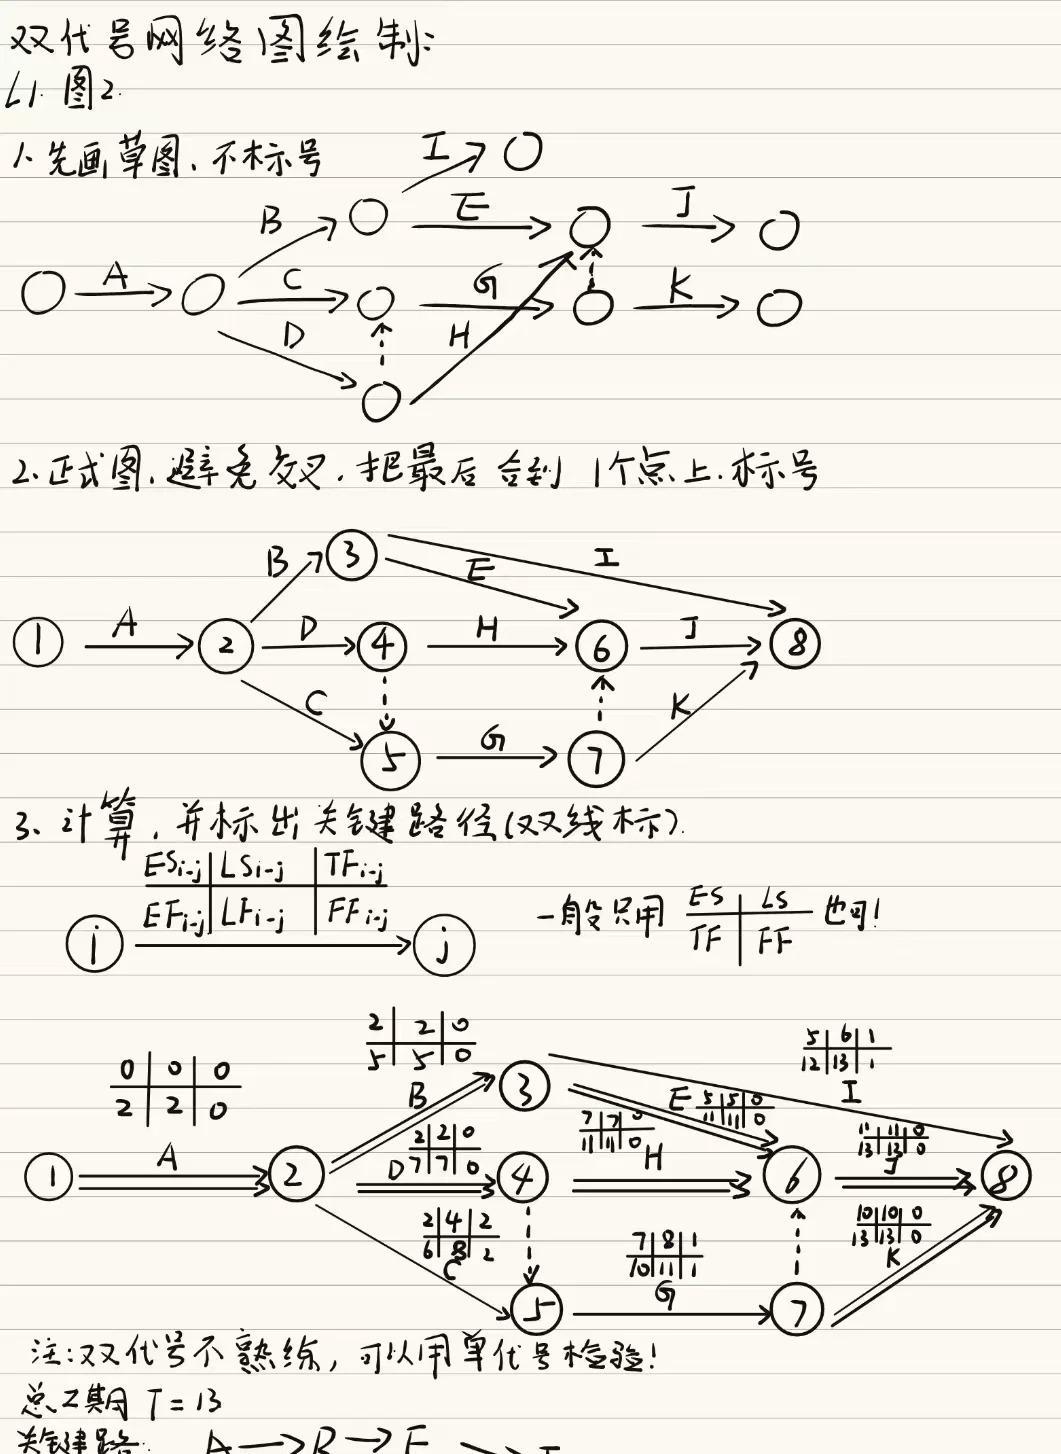 双代号网络图绘制:
L1. 图2.
1、先画草图、不标号
I
B E J
A C G K
D H
2、正式图,避免交叉,把最后合到1个点上.标号
B 3 E I
1 A 2 D 4 H 6 J 8
C K
5 G 7
3、计算,并标出关键路径(双线标).
ESi-j LSi-j TFi-j
EFi-j LFi-j FFi-j
i j
一般只用 ES LS 也可!
TF FF
2 2 0
5 5 0
5 6 1
12 13 1
0 0 0
2 2 0
B 3 E 5 5 0 I
11 11 0
7 7 0
11 11 0
2 2 0
7 7 0
11 11 0
13 13 0
1 A 2 D 4 H 6 J 8
2 4 2
6 8 2
C
7 8 1
10 11 1
G
10 10 0
13 13 0
K
5 7
注:双代号不熟练,可以用单代号检验!
总工期 T = 13
关键路 A → B → E → J